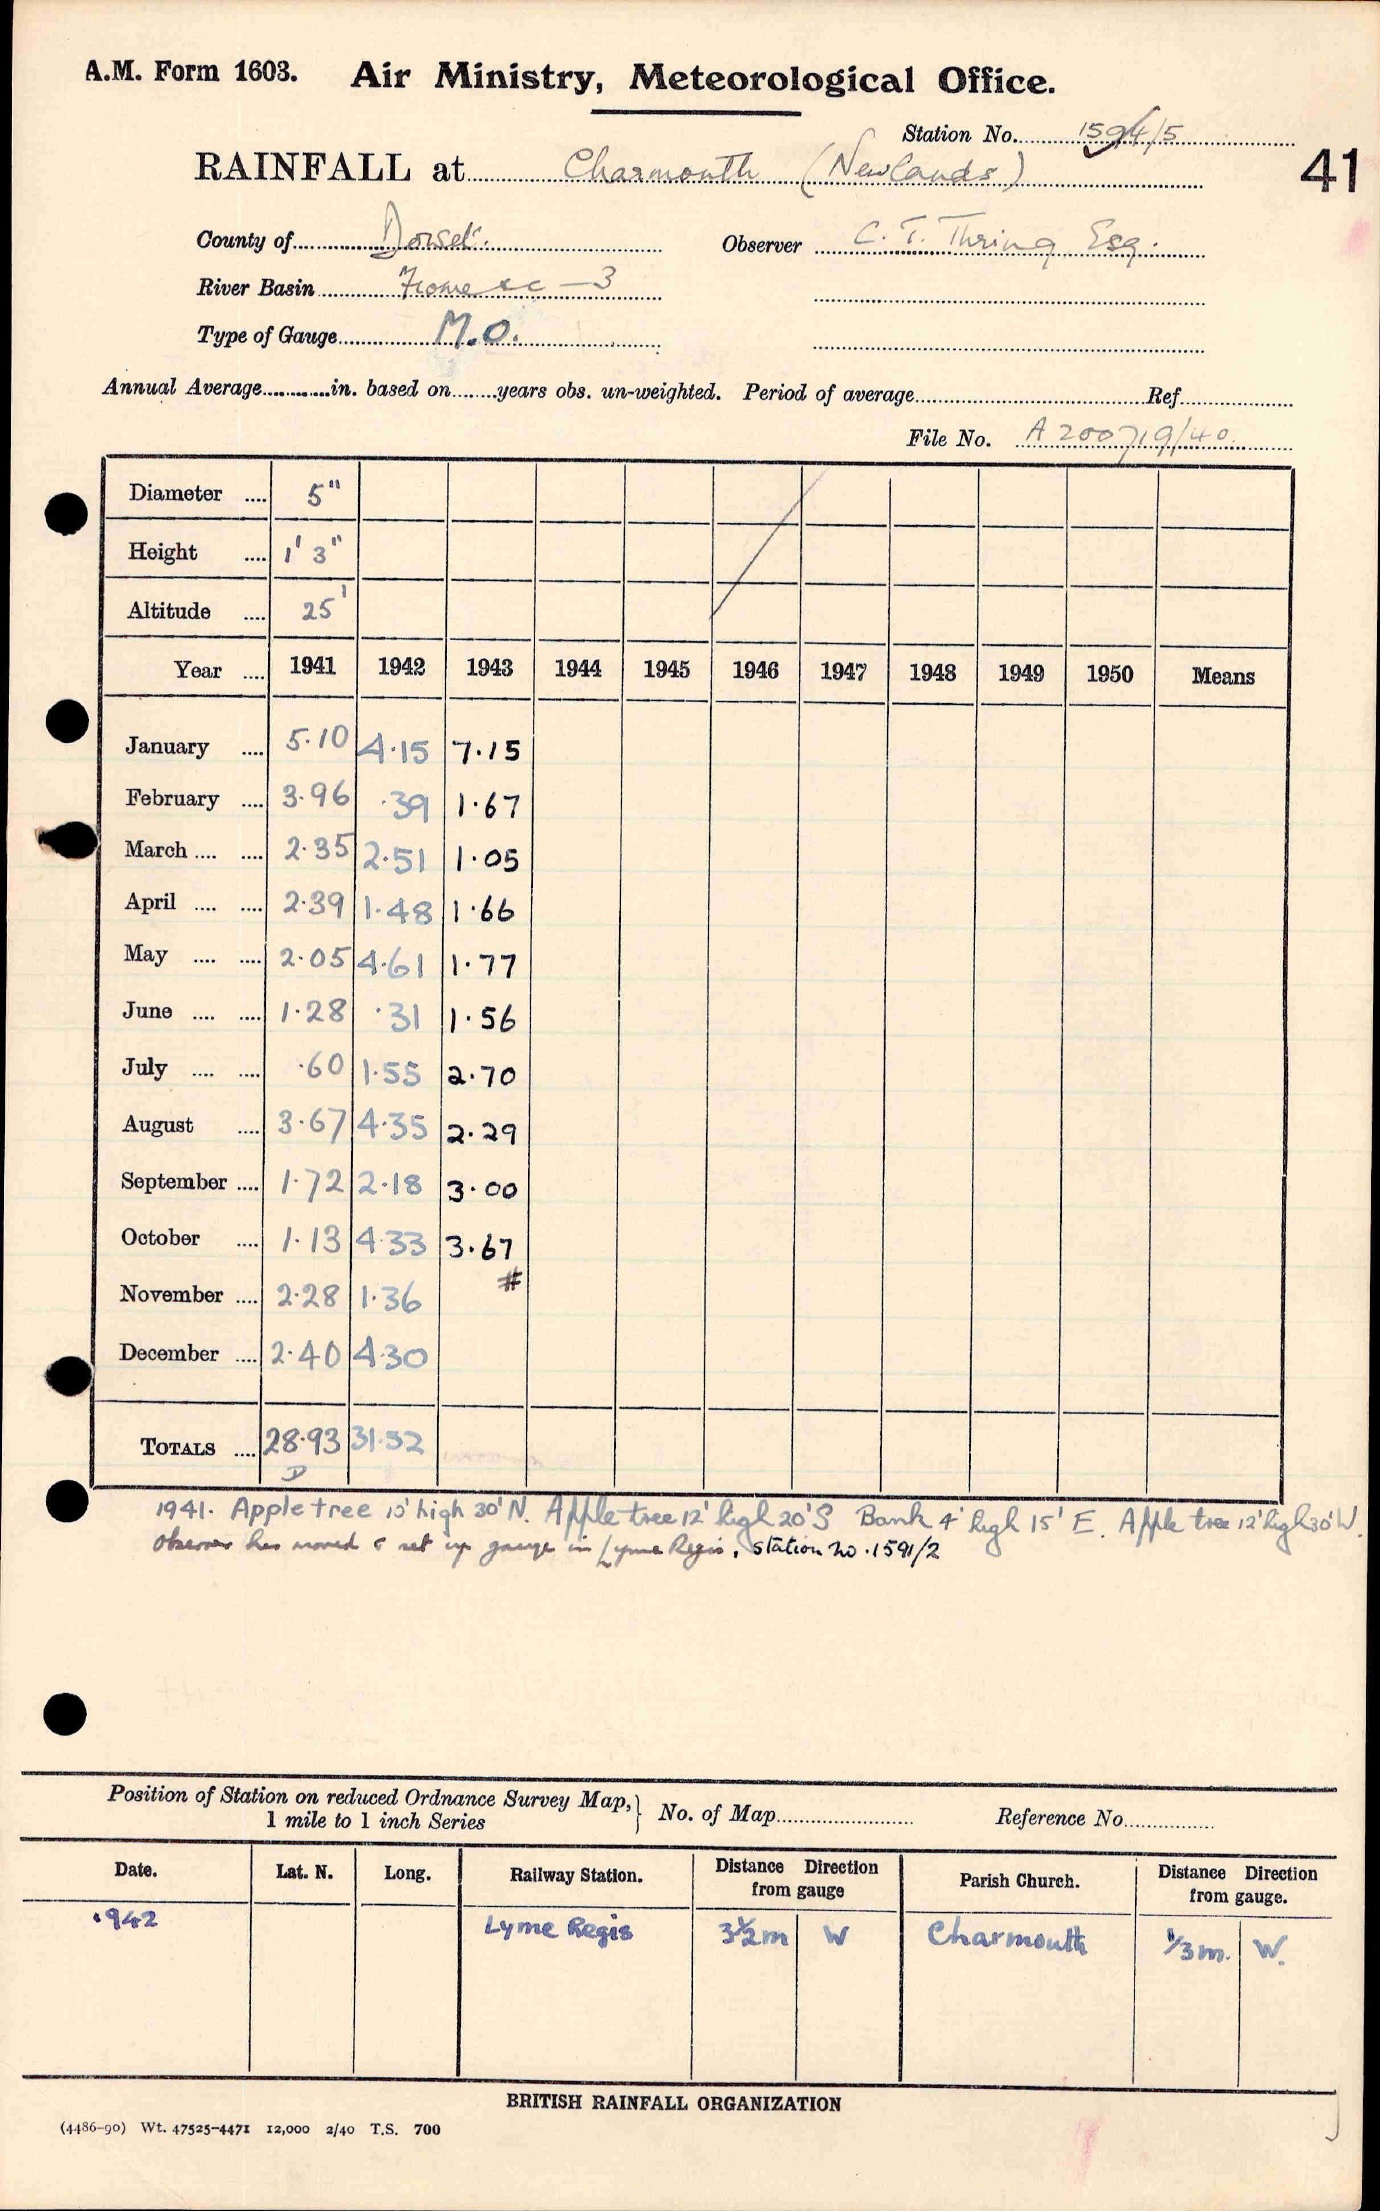 A.M. Form 1603. Air Ministry, Meteorological Office.
Station No. 1594/5
RAINFALL at Charmouth (Newlands) 41
County of Dorset. Observer C. T. Thring Esq.
River Basin Frome &c — 3
Type of Gauge M.O.
Annual Average in. based on years obs. un-weighted. Period of average Ref
File No. A 200719/40
Diameter .... 5"
Height .... 1' 3"
Altitude .... 25'
Year .... 1941 1942 1943 1944 1945 1946 1947 1948 1949 1950 Means
January .... 5.10 4.15 7.15
February .... 3.96 .39 1.67
March .... .... 2.35 2.51 1.05
April .... .... 2.39 1.48 1.66
May .... .... 2.05 4.61 1.77
June .... .... 1.28 .31 1.56
July .... .... .60 1.55 2.70
August .... 3.67 4.35 2.29
September .... 1.72 2.18 3.00
October .... 1.13 4.33 3.67
#
November .... 2.28 1.36
December .... 2.40 4.30
TOTALS .... 28.93 31.52
D
1941. Apple tree 15' high 30' N. Apple tree 12' high 20' S Bank 4' high 15' E. Apple tree 12' high 30' W.
Observer has moved & set up gauge in Lyme Regis. Station No. 1591/2
Position of Station on reduced Ordnance Survey Map, } No. of Map Reference No.
1 mile to 1 inch Series
Date. Lat. N. Long. Railway Station. Distance Direction from gauge Parish Church. Distance Direction from gauge.
1942 Lyme Regis 3½m W Charmouth 1/3 m. W.
BRITISH RAINFALL ORGANIZATION
(4486-90) Wt. 47525-4471 12,000 2/40 T.S. 700